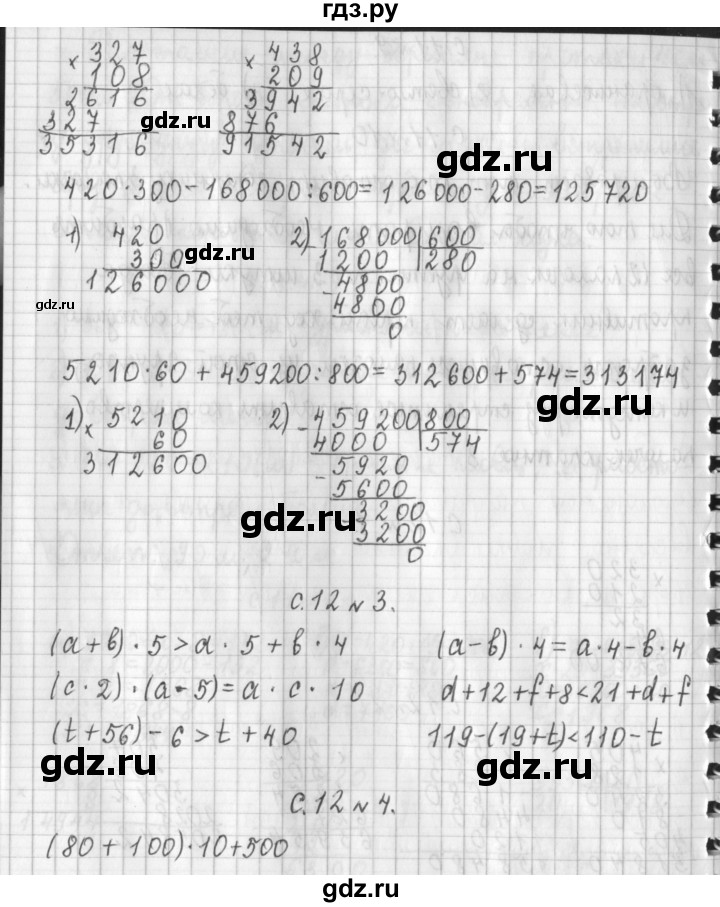 гдз.ру
× 327 × 438
108 209
2616 3942
327 876
35316 91542
gdz.ru
gdz.ru
420·300-168000:600=126000-280=125720
1) 420 2) -168000|600
300 1200 280
126000 -4800
4800
0
gdz.ru
gdz.ru
5210·60+459200:800=312600+574=313174
gdz.ru
1) × 5210 2) -459200|800
60 4000 574
312600 -5920
5600
-3200
3200
0
gdz.ru
с.12 № 3.
(a+b)·5>a·5+b·4 (a-b)·4=a·4-b·4
(c·2)·(a·5)=a·c·10 d+12+f+8<21+d+f
(t+56)-6>t+40 119-(19+t)<110-t
gdz.ru gdz.ru
с.12 № 4.
(80+100)·10+500
gdz.ru